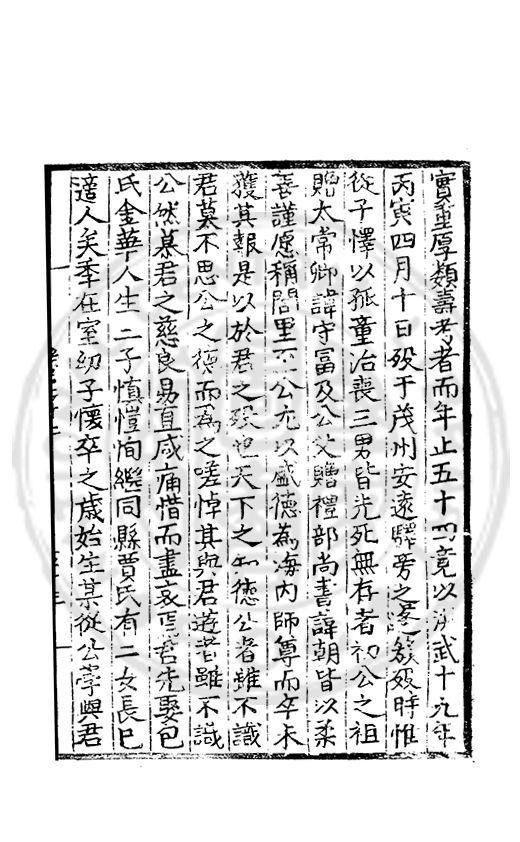 實重厚類壽考者而年止五十四竟以洪武十九年
丙寅四月十日歿于茂州安遠驛旁之蘧篨歿時惟
從子懌以孤童治喪三男皆先死無存者初公之祖
贈太常卿諱守冨及公父贈禮部尚書諱朝皆以柔
善謹愿稱閭里至公尤以盛德為海内師尊而卒未
獲其報是以於君之歿也天下之知德公者雖不識
君莫不思公之德而為之嗟悼其與君遊者雖不識
公然慕君之慈良易直咸痛惜而盡哀焉君先娶包
氏金華人生二子慎愷恂繼同縣賈氏有二女長已
適人矣季在室幼子懷卒之歲始生某從公學與君